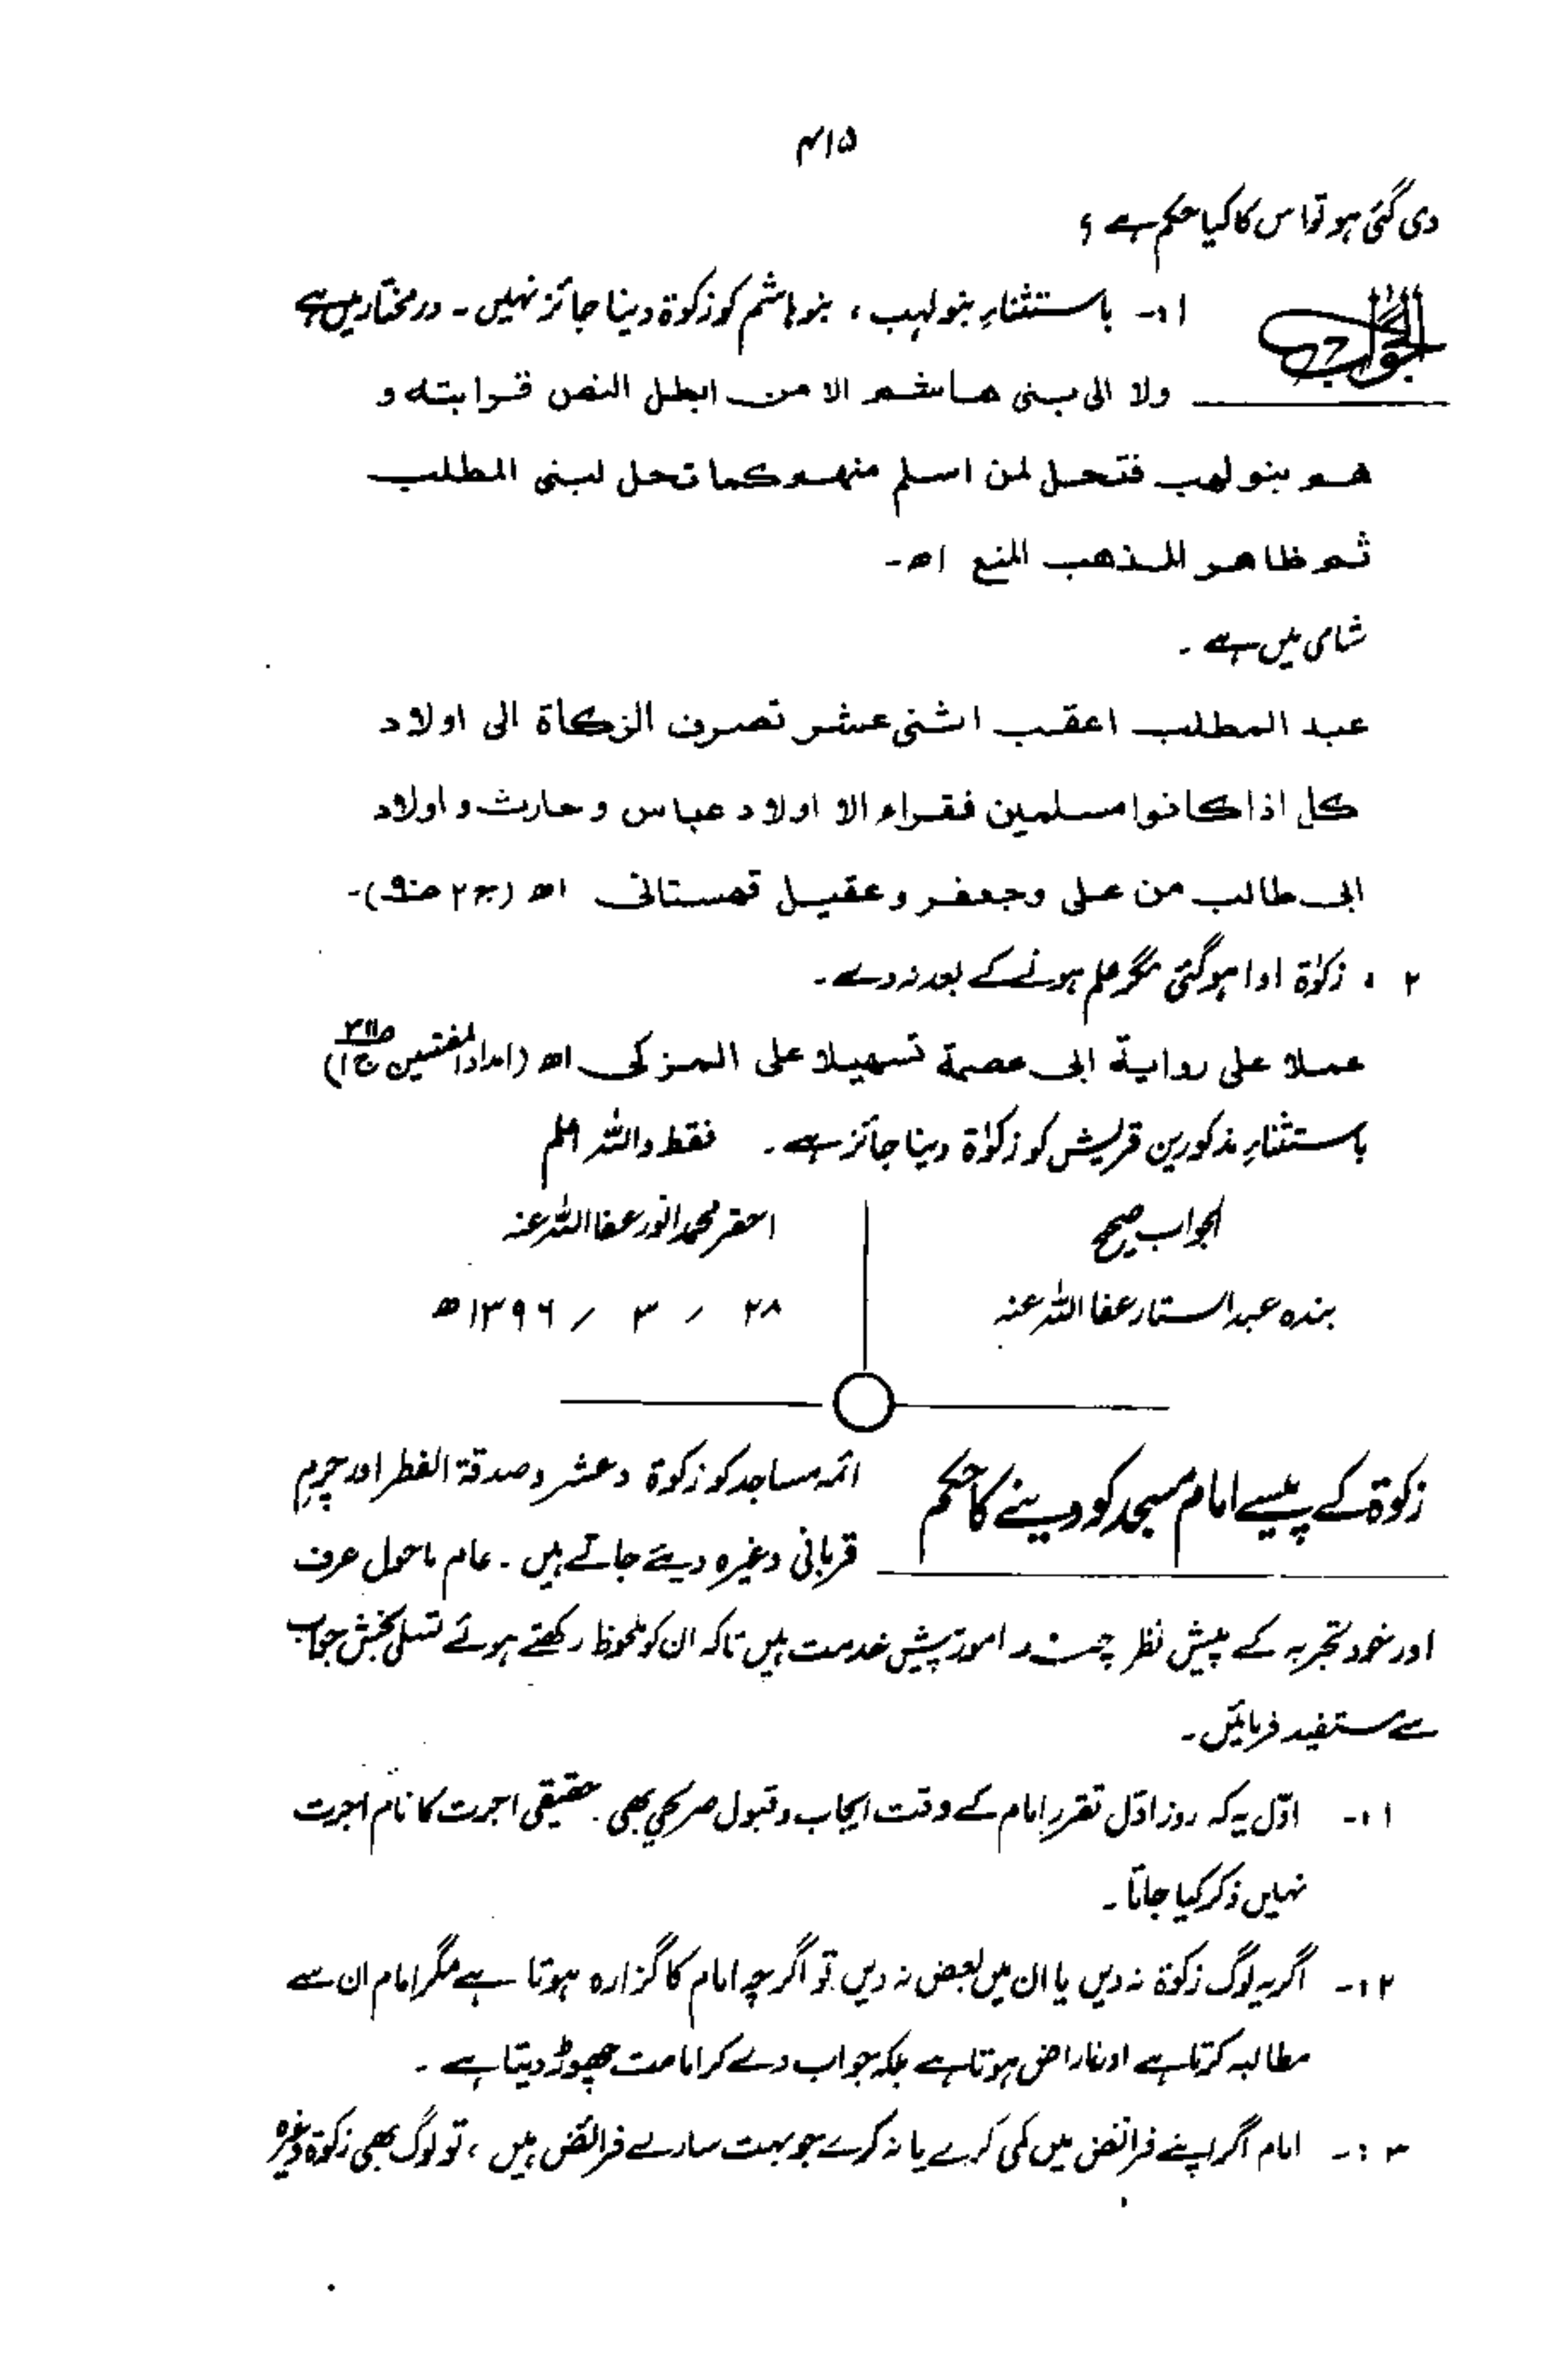 ۴۱۵
دی گئی ہو تو اس کا کیا حکم ہے ؟
الجواب
۱ :- باستثنارِ بنو لہب ، بنو ہاشم کو زکوٰۃ دینا جائز نہیں ۔ درمختار میں ہے
ولا الی بنی ھاشم الا من ابطل النص قرابته و
ھم بنو لھب فتحل لمن اسلم منھم کما تحل لبنی المطلب
ثم ظاھر المذھب المنع اھ۔
شامی میں ہے ۔
عبد المطلب اعقب اثنی عشر تصرف الزکاة الی اولاد
کل اذا کانوا مسلمین فقراء الا اولاد عباس و حارث و اولاد
ابی طالب من علی وجعفر و عقیل قھستانی اھ (ج۲ ص۹۰)۔
۲ : زکوٰۃ ادا ہوگئی مگر علم ہونے کے بعد نہ دے ۔
عملا علی روایة ابی عصمة تسھیلا علی المزکی اھ (امداد المفتیین ج۱)
باستثنارِ مذکورین قریش کو زکوٰۃ دینا جائز ہے ۔ فقط واللہ اعلم
الجواب صحیح
بندہ عبدالستار عفا اللہ عنہ
احقر محمد انور عفا اللہ عنہ
۲۸ / ۳ / ۱۳۹۶ھ
زکوٰۃ کے پیسے امام مسجد کو دینے کا حکم
ائمہ مساجد کو زکوٰۃ و عشر و صدقۃ الفطر اور چرم
قربانی وغیرہ دیئے جاتے ہیں ۔ عام ماحول عرف
اور خود تجربہ کے پیش نظر چند امور پیش خدمت ہیں تاکہ ان کو ملحوظ رکھتے ہوئے تسلی بخش جواب
سے مستفید فرمائیں ۔
۱ :- اوّل یہ کہ روز اوّل تقرر امام کے وقت ایجاب و قبول صریحی بھی ۔ حقیقی اجرت کا نام اجرت
نہیں ذکر کیا جاتا ۔
۲ :- اگر یہ لوگ زکوٰۃ نہ دیں یا ان میں بعض نہ دیں تو اگرچہ امام کا گزارہ ہوتا ہے مگر امام ان سے
مطالبہ کرتا ہے اور ناراض ہوتا ہے بلکہ جواب دے کر امامت چھوڑ دیتا ہے ۔
۳ :- امام اگر اپنے فرائض میں کمی کرے یا نہ کرے جو بہت سارے فرائض ہیں ، تو لوگ بھی زکوٰۃ وغیرہ